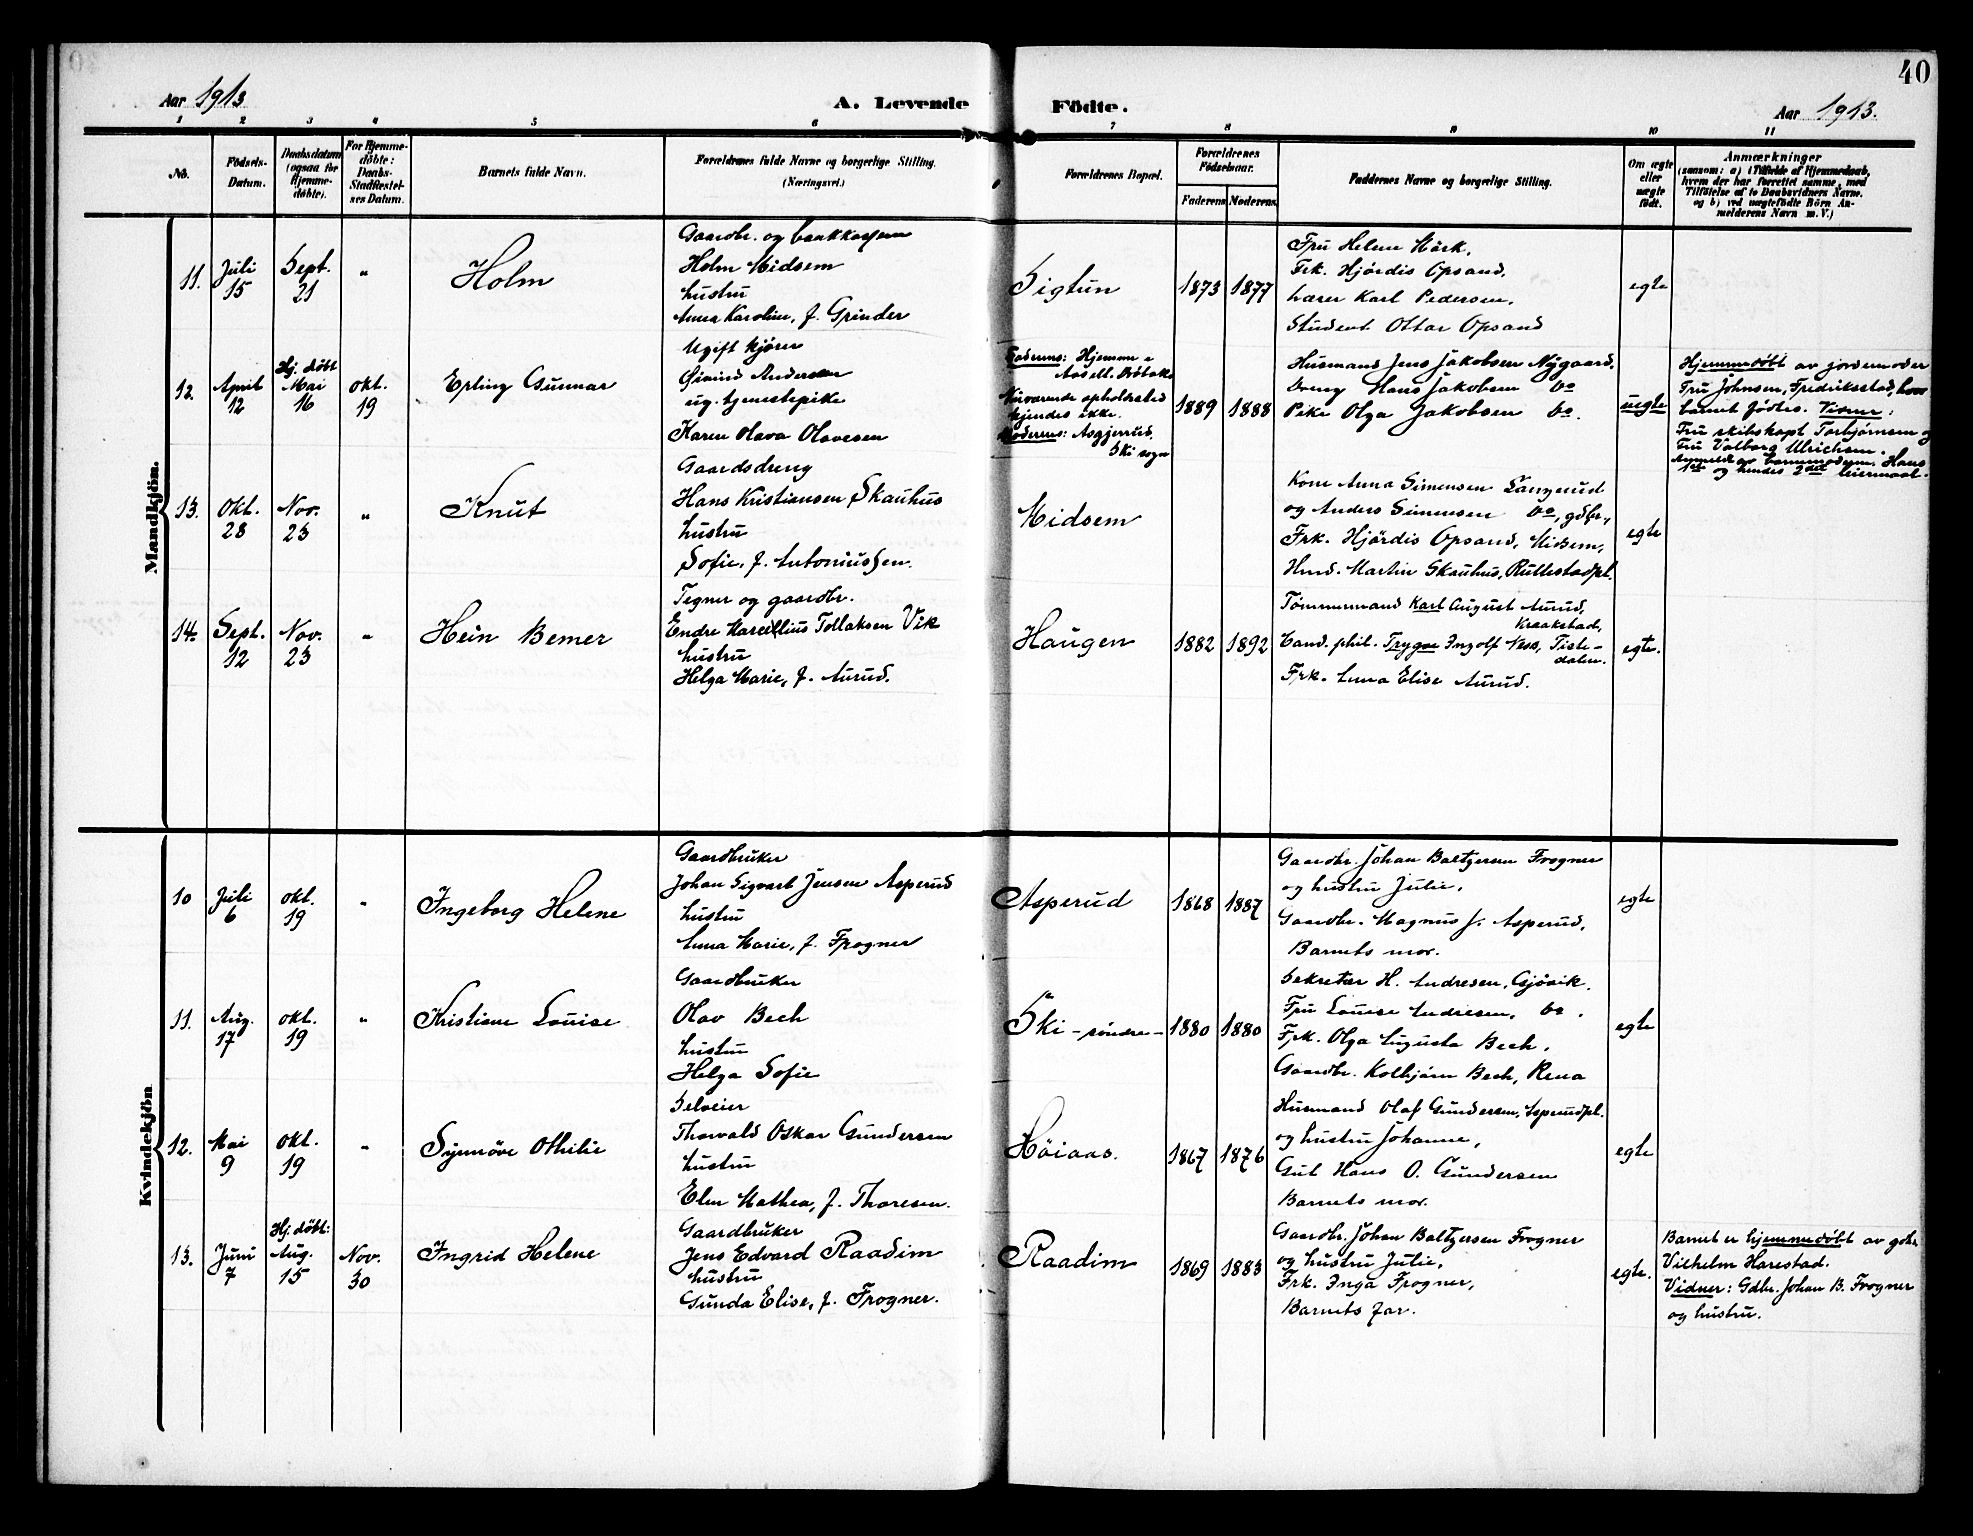 40
Aar 1913
A. Levende Födte.
Aar 1913.
1 2 3 4 5 6 7 8 9 10 11
No.
Födsels-
Datum.
Daabsdatum
(ogsaa for
Hjemme-
döbte).
For Hjemme-
döbte:
Daabs-
Stadfæstel-
ses Datum.
Barnets fulde Navn.
Forældrenes fulde Navne og borgerlige Stilling.
(Næringsvei.)
Forældrenes Bopæl.
Forældrenes
Födselsaar.
Faderens Moderens
Faddernes Navne og borgerlige Stilling.
Om ægte
eller
uægte
födt.
Anmærkninger
(saasom: a) i Tilfælde af Hjemmedaab,
hvem der har forrettet samme, med
Tilföielse af to Daabsvidners Navne.
og b) ved uægtefödte Börn An-
melderens Navn m. V.)
Mandkjön.
11.
Juli
15
Sept.
21
"
Holm
Gaardbr. og bankkasserer
Holm Midsem
hustru
Anna Karoline, f. Grinder
Sigtun
1873 1877
Fru Helene Mörk,
Frk. Hjördis Opsand,
Lærer Karl Pedersen,
Student Ottar Opsand
egte
12.
April
12
Hj. döbt
Mai
16
Okt.
19
Erling Gunnar
Ugift kjører
Øivind Andersen
ug. tjenestepike
Karen Olava Olavesen
Faderens: Hjemme i
Nuværende opholdssted
kjendes ikke.
Moderens: Asgjerrud,
Ski sogn
1889 1888
Husmand Jens Jakobsen Nygaard.
Dreng Hans Jakobsen Do
Pike Olga Jakobsen Do.
uegte
Hjemmedöbt av jordemoder
Fru Johnsen, Fredrikstad, hvor
barnet födtes. Vidner:
Fru skibskapt. Torbjörnsen og
Fru Valborg Ulrichsen.
Anmeldt av barnemoderen. Hans
1ste og hendes 2det leiermaal.
13.
Okt.
28
Nov.
23
"
Knut
Gaardsdreng
Hans Kristiansen Skauhus
hustru
Sofie, f. Antoniussen.
Midsem
Kone Anna Simensen Langerud
og Anders Simensen Do, gdbr.,
Frk. Hjördis Opsand, Midsem,
Husmd. Martin Skauhus, Rullestadpl.
egte
14.
Sept.
12
Nov.
23
"
Hein Bemer
Tegner og gaardbr.
Endre Marcellius Tollaksen Vik
hustru
Helga Marie, f. Aurud.
Haugen
1882 1892
Tømmermand Karl August Aurud,
Kraakstad,
Cand. phil. Trygve Ingolf Ness, Tiste-
dalen.
Frk. Anna Elise Aurud.
egte.
Kvindekjön
10
Juli
6
Okt.
19
"
Ingeborg Helene
Gaardbruker
Johan Sigvart Jensen Asperud
hustru
Anna Marie, f. Frogner
Asperud
1868 1887
Gaardbr. Johan Baltzersen Frogner
og hustru Julie,
Gaardbr. Magnus J. Asperud,
Barnets mor.
egte
11.
Aug.
17
Okt.
19
"
Kristiane Louise
Gaardbruker
Olav Bech
hustru
Helga Sofie
Ski - söndre -
1880 1880
Sekretær H. Andresen, Gjövik.
Fru Louise Andresen, Do.
Frk. Olga Augusta Bech,
Gaardbr. Kolbjörn Bech, Rena
egte
12.
Mai
9
Okt.
19
"
Synnöve Othilie
Selveier
Thorvald Oskar Gundersen
hustru
Elen Mathea, f. Thoresen.
Höiaas.
1867 1876
Husmand Olaf Gundersen, Asperudpl.
og hustru Johanne,
Gut Hans O. Gundersen
Barnets mor.
egte
13.
Juni
7
Hj. döbt:
Aug.
15
Nov.
30
Ingrid Helene
Gaardbruker
Jens Edvard Raadim
hustru
Gunda Elise, f. Frogner.
Raadim
1869 1883
Gaardbr. Johan Baltzersen Frogner
og hustru Julie,
Frk. Inga Frogner,
Barnets far.
egte.
Barnet er hjemmedöbt av gdbr.
Vilhelm Harestad.
Vidner: Gdbr. Johan B. Frogner
og hustru.